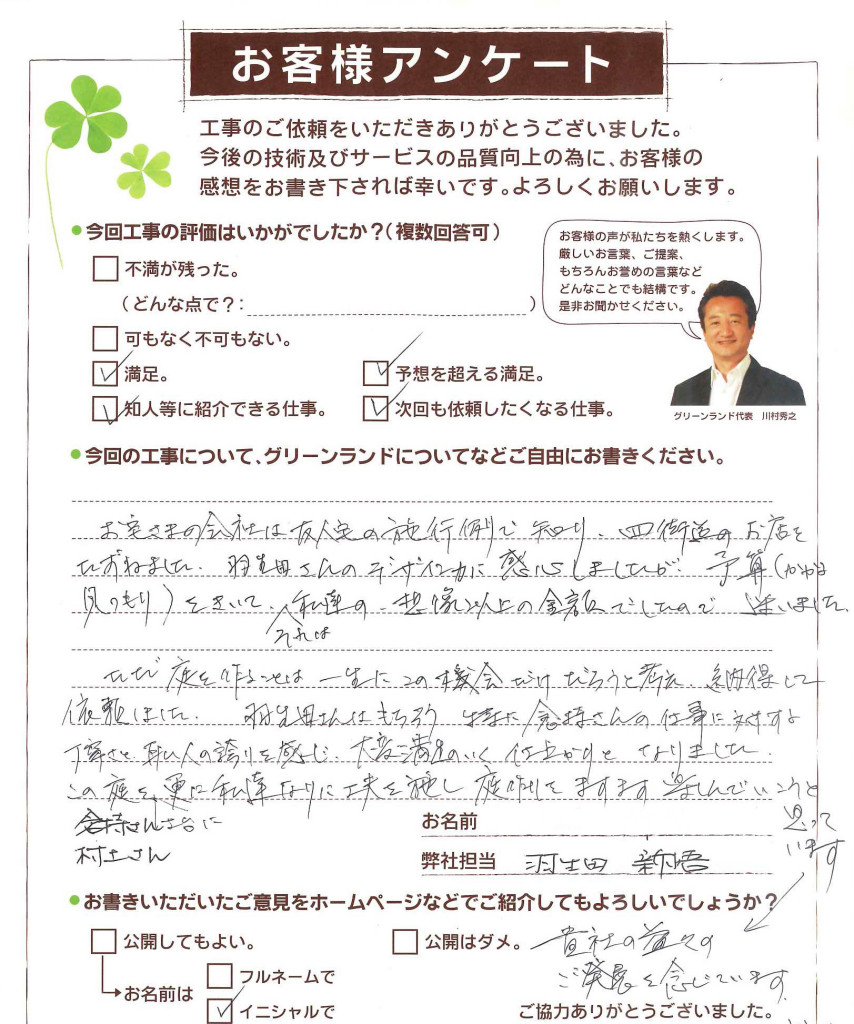 お客様アンケート
工事のご依頼をいただきありがとうございました。
今後の技術及びサービスの品質向上の為に、お客様の
感想をお書き下されば幸いです。よろしくお願いします。
今回工事の評価はいかがでしたか?(複数回答可)
不満が残った。
(どんな点で?: )
可もなく不可もない。
満足。
予想を超える満足。
知人等に紹介できる仕事。
次回も依頼したくなる仕事。
お客様の声が私たちを熱くします。
厳しいお言葉、ご提案、
もちろんお誉めの言葉など
どんなことでも結構です。
是非お聞かせください。
グリーンランド代表 川村秀之
今回の工事について、グリーンランドについてなどご自由にお書きください。
の会社は友人宅の施行例で知り、四街道のお店を
たずねました。羽生田さんのデザイン力に感心しましたが、予算(
見つもり)をきいて、それは私達の想像以上の金額でしたので迷いました。
ただ庭を作ることは一生にこの機会だけだろうと考え、納得して
依頼しました。羽生田さんはもちろん 特に倉持さんの仕事に対する
丁寧さと職人の誇りを感じ、大変満足のいく仕上がりとなりました。
この庭を更に私達なりに工夫を施し庭作りをますます楽しんでいこうと
思って
います
倉持さん
村土さん
お名前
弊社担当 羽生田 新悟
お書きいただいたご意見をホームページなどでご紹介してもよろしいでしょうか?
公開してもよい。
公開はダメ。
貴社の益々の
ご発展を念じています。
お名前は
フルネームで
イニシャルで
ご協力ありがとうございました。